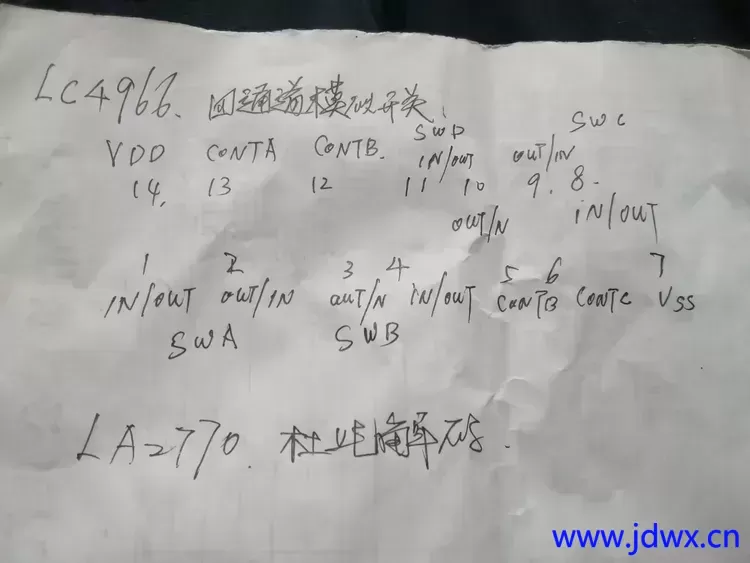 LC4966. 回通道模拟开关
SWD SWC
VDD CONTA CONTB. IN/OUT OUT/IN
14. 13 12 11 10 9. 8.
OUT/N IN/OUT
1 2 3 4 5 6 7
IN/OUT OUT/IN OUT/N IN/OUT CONTB CONTC VSS
SWA SWB
LA2770. 杜比解码.
www.jdwx.cn